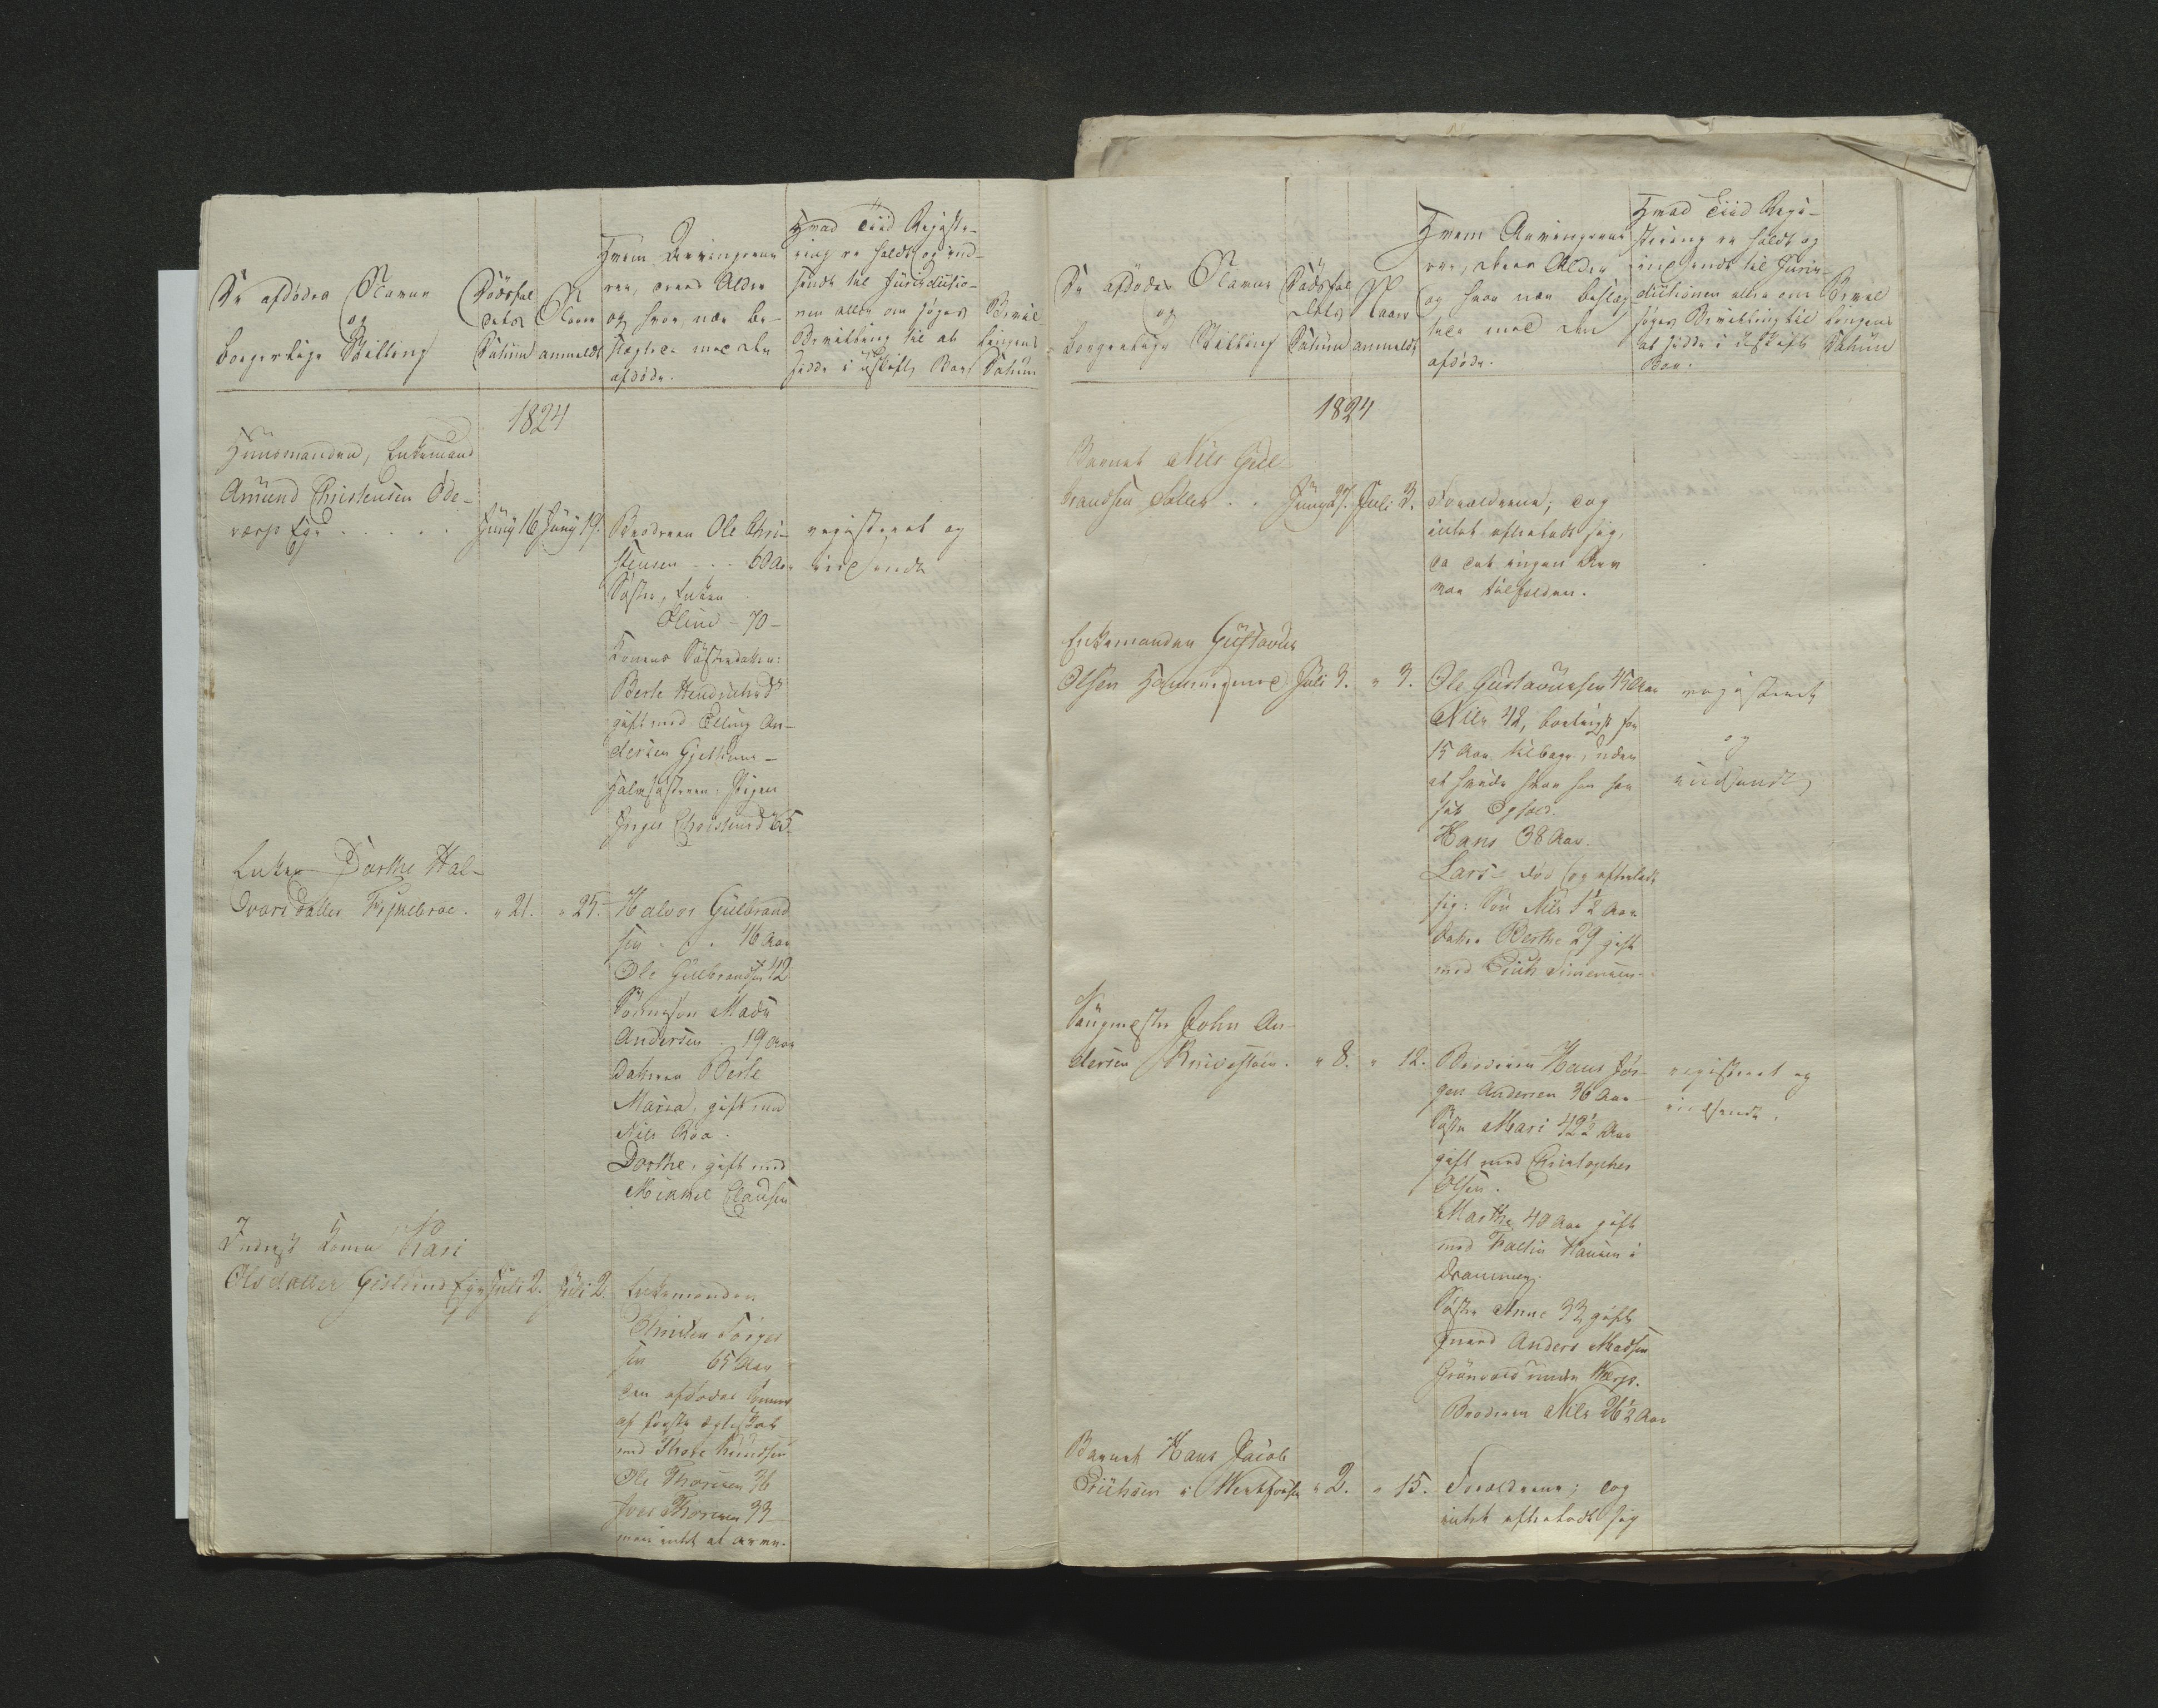 De afdødes Navne
og
borgerlige Stilling
Dødsfal
dets
Datum
Naar
anmeldt
Hvem Arvingerne
ere, deres Alder
og hvor nær be-
slægtede med den
afdøde.
Hvad Tiid Registe-
ring er holdt og ind-
sendt til Jurisdictio-
nen eller om søges
Bevilling til at
sidde i uskiftet Boe
Bevil-
lingens
Datum
1824
Huusmanden, Enkemand
Amund Christensen Ode-
værps Eye . . . . .
Juny 16 Juny 19.
Broderen Ole Chri-
stensen - . . 60 Aar
Søster, Enken
Eline - 70 -
Konens Søsterdatter:
Berte Hendrichsd
gift med Elling An-
dersen Gjethuus -
Halvsøsteren: Pigen
Inger Christensd 65
registeret og
indsendt
Enken Dorthe Hal-
vorsdatter Fyhlebroe.
" 21. " 25.
Halvor Gulbrand
sen . . . 46 Aar
Ole Gulbrandsen 42
Sønnesøn Mads
Andersen . 19 Aar
Datteren Berte
Maria, gift med
Nils Roa.
Dorthe, gift med
Mikkel Clausen
Inderst Konen Kari
Olsdatter Gislerud Eye
Juli 2. Juli 2.
Enkemanden
Christen Torger
sen 65 Aar
Den afdødes Sønner
af første Ægteskab
med Thore Knudsen
Ole Thoresen 36
Iver Thoresen 33
men intet at arve.
De afdødes Navne
og
borgerlige Stilling
Dødsfal
dets
Datum
Naar
anmeldt
Hvem Arvingerne
ere, deres Alder
og hvor nær beslæg
tede med den
afdøde.
Hvad Tiid Regi-
stering er holdt og
indsendt til Juris-
dictionen eller om
søges Bevilling til
at sidde i uskiftet
Boe.
Bevil
lingens
Datum
1824
Barnet Nils Gul
brandsen Saller . .
Juny 27. Juli 3.
Forældrene; dog
intet efterladt sig,
da det ingen Arv
var tilfalden.
Enkemanden Gustavus
Olsen Hammeren
Juli 3. " 3.
Ole Gustavusen 45 Aar
Nils 42, bortreist for
15 Aar tilbage, uden
at vide hvor han har
sit Ophold.
Hans 38 Aar.
Lars - død og efterladt
sig: Søn Nils 1½ Aar
Datter Berthe 29 gift
med Erich Simensen -
registeret
og
indsendt
Saugmester John An-
dersen Krigsføen.
" 8. " 12.
Broderen Hans Jør-
gen Andersen 36 Aar
Søster Mari 42½ Aar
gift med Christopher
Olsen.
Marthe 40 Aar gift
med Faltin Hansen i
Drammen.
Søster Anne 33 gift
med Anders Madsen
Grønvold under Værp.
Broderen Nils 26½ Aar
registeret og
indsendt.
Barnet Hans Jacob
Erichsen i Westfossen
" 2. " 15.
Forældrene; dog
intet efterladt sig